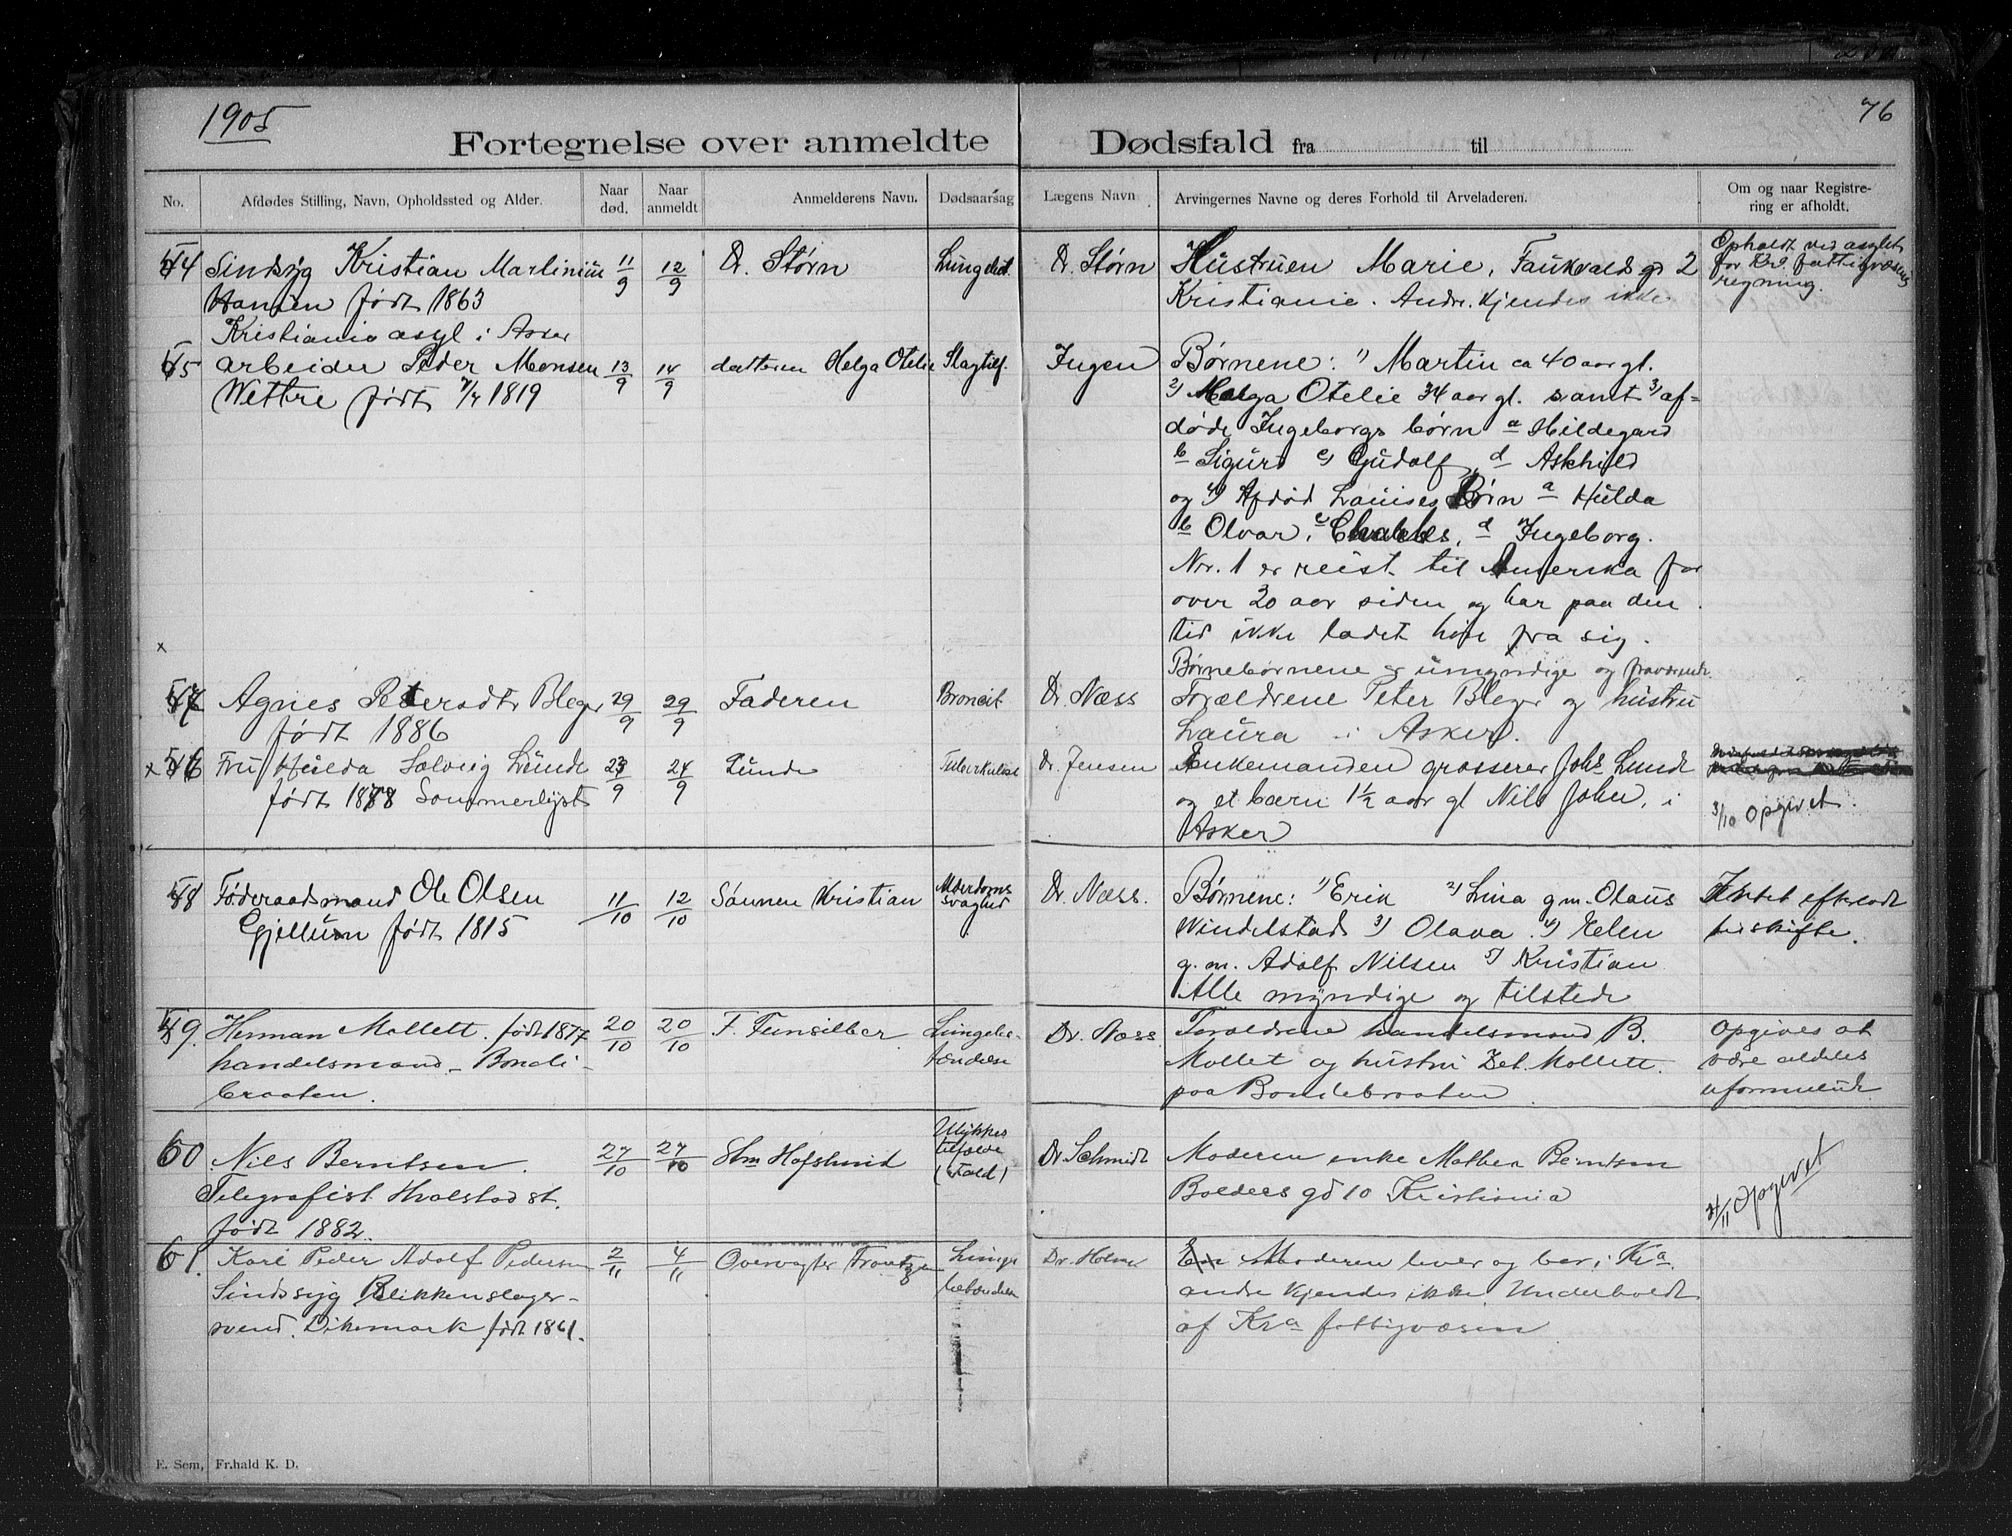 1905
76
Fortegnelse over anmeldte Dødsfald fra til
No. Afdødes Stilling, Navn, Opholdssted og Alder. Naar død. Naar anmeldt Anmelderens Navn. Dødsaarsag Lægens Navn Arvingernes Navne og deres Forhold til Arveladeren. Om og naar Registrering er afholdt.
54 Sindsyg Kristian Martinius 11/9 12/9 D. Størn Dr. Størn Hustruen Marie, 2 Opholdt ved asylet
Hansen født 1863 Kristiania. Andre kjendes ikke for Kr.a fattigvæsens
Kristiania asyl i Asker regning.
55 arbeider Peder Monsen 13/9 14/9 datteren Helga Otelie Slagtilf. Ingen Børnene: 1) Martin ca 40 aar gl.
Wettre født 1819 2) Helga Otelie 34 aar gl. samt 3) af-
døde Ingeborgs børn a Hildegard
b Sigurd c) Gudolf, d Askhild
og 4) Afdød Louises Børn a Hulda
b Olvar, c Charles, d Ingeborg.
Nr. 1 er reist til Amerika for
over 20 aar siden og har paa den
tid ikke ladet høre fra sig.
x Børnebørnene er umyndige og fraværende
57 Agnes Petersdtr Bleger 29/9 29/9 Faderen Broncit Dr. Næss Forældrene Peter Bleger og hustru
født 1886 Laura i Asker.
x 56 Fru Hilda Solveig Lunde 23/9 24/9 Lunde Tuberkulose Dr. Jensen Enkemanden grosserer Johs Lunde
født 1878 Sommerlyst og et barn 1½ aar gl Nils John, i 3/10 Opgivet.
Asker
58 Føderaadsmand Ole Olsen 11/10 12/10 Sønnen Kristian Alderdoms Dr. Næss. Børnene: 1) Erik 2) Lina g.m. Olaus Intet efterladt
Gjellum født 1815 svaghed Windelstad 3) Olava 4) Helen til skifte.
g.m. Adolf Nilsen 5) Kristian
Alle myndige og tilstede
59. Herman Mollett. født 1877 20/10 20/10 F. Funsilber Lungebe- Dr. Næss Forældrene handelsmand B. Opgives at
handelsmand Bondi- tændelse Mollet og hustru Zet. Mollett. være aldeles
braaten. paa Bondebraaten uformuende
60 Nils Berntsen. 27/10 27/10 Stm Hofslund Ulykkes Dr Schmidt Moderen enke Mathea Berntsen
Telegrafist Hvalstad st. tilfælde Bolders gd 10 Kristiania
født 1882. (Fald) Opgivet
61. Karl Peder Adolf Pedersen 2/11 4/11 Overvogter Lunge Dr. Holmer Moderen lever og bor i Kr.a
Sindssyg Blikkenslager- betændelse andre kjendes ikke. Underholdt
svend. Dikemark født 1861. af Kr.a fattigvæsen
E. Sem, Fr.hald K. D.